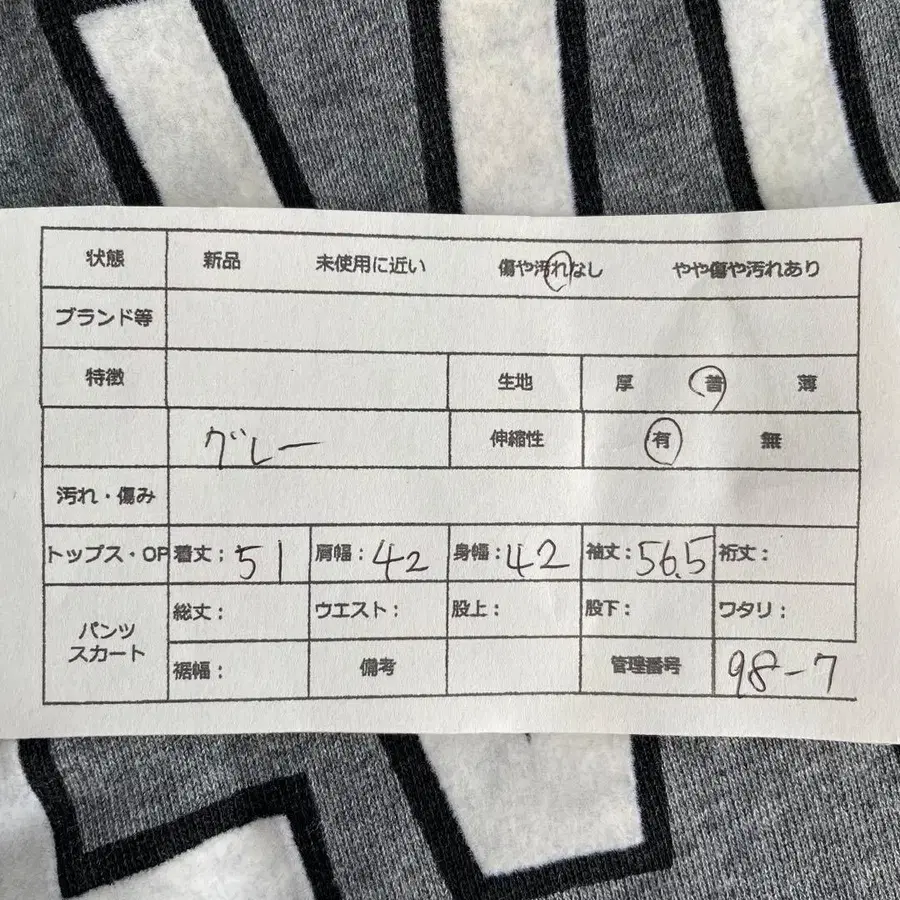 状態 新品 未使用に近い 傷や汚れなし やや傷や汚れあり
ブランド等
特徴 生地 厚 普 薄
グレー 伸縮性 有 無
汚れ・傷み
トップス・OP 着丈：51 肩幅：42 身幅：42 袖丈：56.5 裄丈：
パンツ スカート 総丈： ウエスト： 股上： 股下： ワタリ：
裾幅： 備考 管理番号 98-7